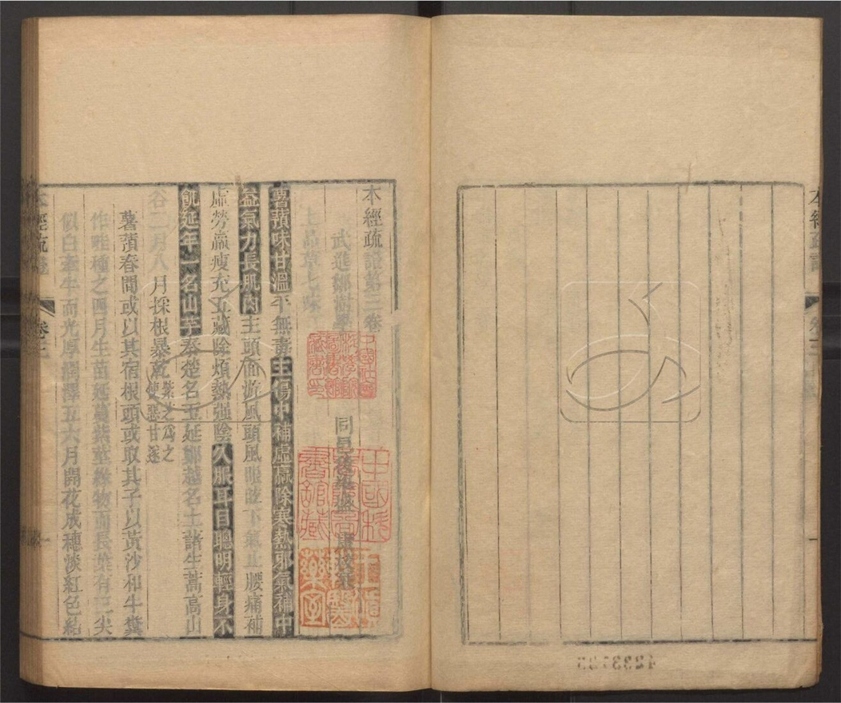 本經疏證
卷三
本經疏證第三卷
武進鄒澍學
同邑後學盛
上品草七味
薯蕷味甘溫平無毒主傷中補虛羸除寒熱邪氣補中
益氣力長肌肉主頭面遊風頭風眼眩下氣止腰痛補
虛勞羸瘦充五藏除煩熱強陰久服耳目聰明輕身不
飢延年一名山芋秦楚名玉延鄭越名土藷生蒿高山
谷二月八月採根暴乾紫芝為之
使惡甘遂
薯蕷春間或以其宿根頭或取其子以黃沙和牛糞
作畦種之四月生苗延蔓紫莖緣物而長葉有三尖
似白牽牛而光厚潤澤五六月開花成穗淡紅色結
本經疏證
卷三